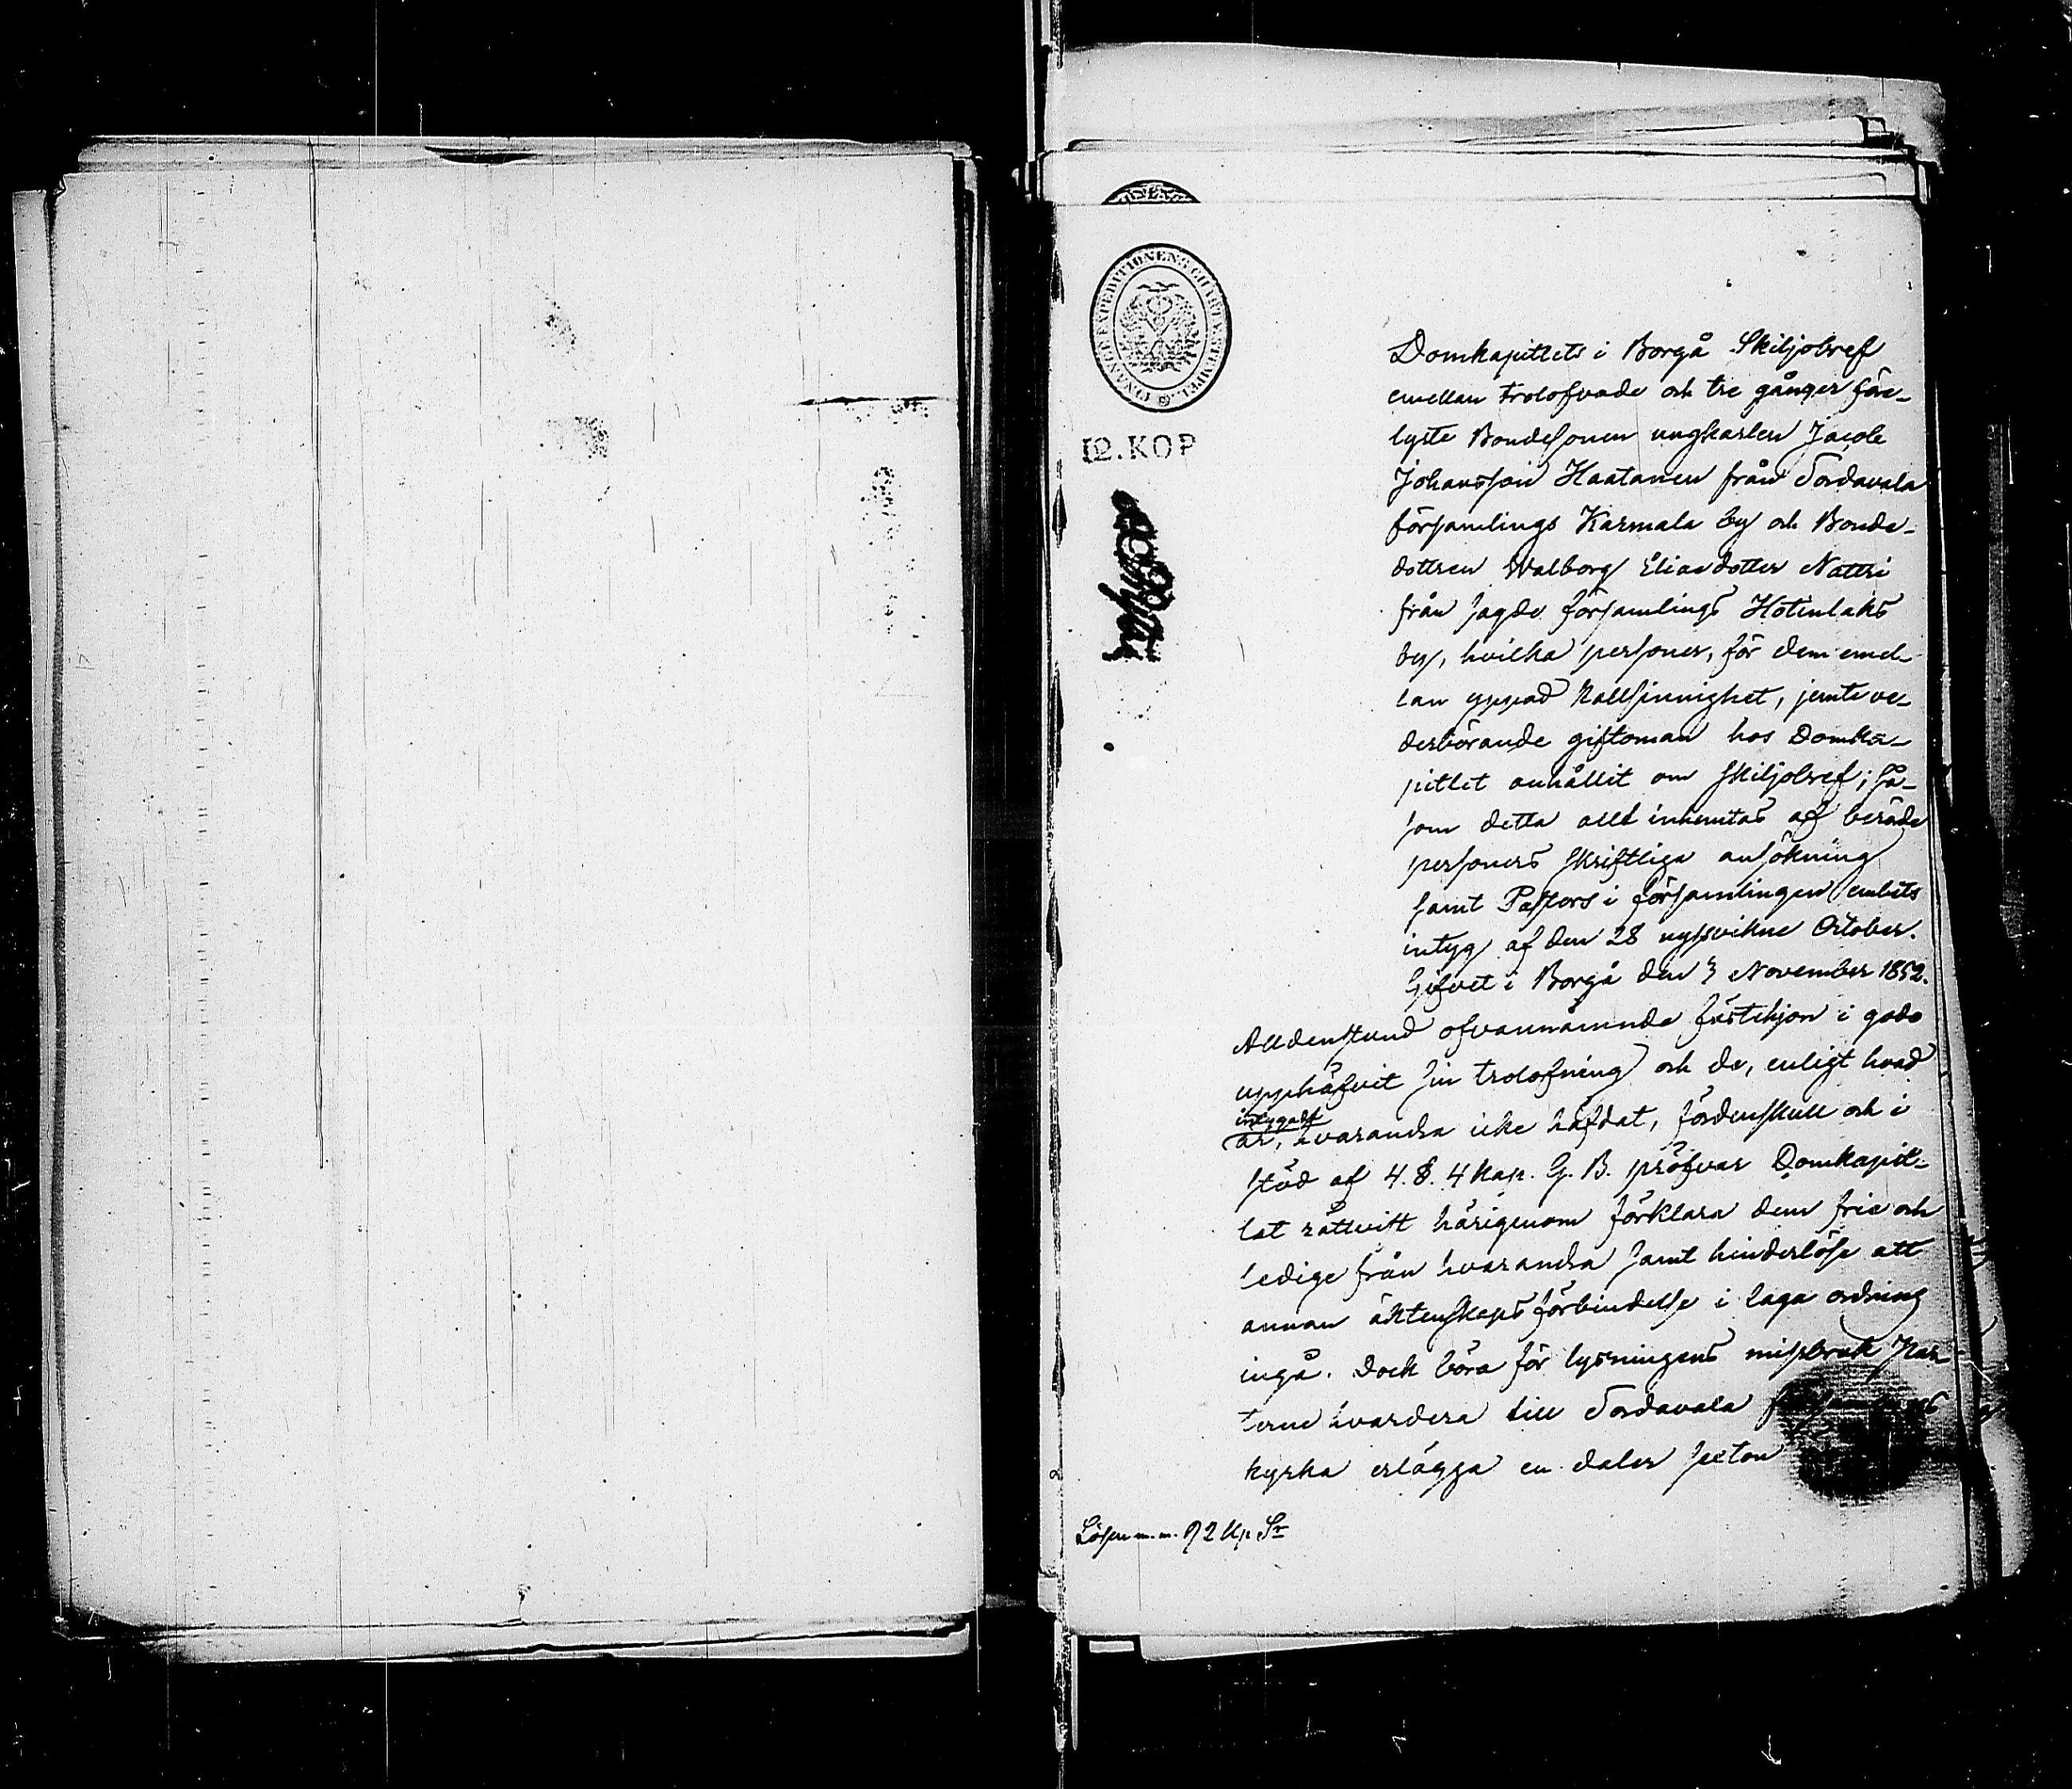 FINANCE EXPEDITIONENS CHARTÆ STEMPEL
12. KOP
Domkapitlets i Borgå Skiljobref
emellan trolofvade och tre gånger före-
lyste Bondesonen ungkarlen Jacob
Johansson Haatanen från Sordavala
församlings Karmala by och Bonde-
dottren Walborg Eliasdotter Nattri
från sagde församlings Hotinlaks
by, hvilka personer, för dem emel-
lan yppad kallsinnighet, jemte ve-
derbörande giftoman hos Domka-
pitlet anhållit om skiljobref; så-
som detta allt inhemtas af berörde
personers skriftliga ansökning
samt Pastors i församlingen embets
intyg af den 28 nyssvikne October.
Gifvet i Borgå den 3 November 1852.
Alldenstund ofvannämnde fästehjon i godo
upphäfvit sin trolofning och de, enligt hvad
intygadt
är, hvarandra icke häfdat, fördenskull och i
stöd af 4. §. 4 Kap. G. B. pröfvar Domkapit-
let rättvist härigenom förklara dem frie och
ledige från hvarandra samt hinderlöse att
annan äktenskapsförbindelse i laga ordning
ingå. Dock böra för lysningens missbruk Kar-
terne hvardera till Sordavala församlings
kyrka erlägga en daler sexton
Lösen m.m. 92 Kp Sr